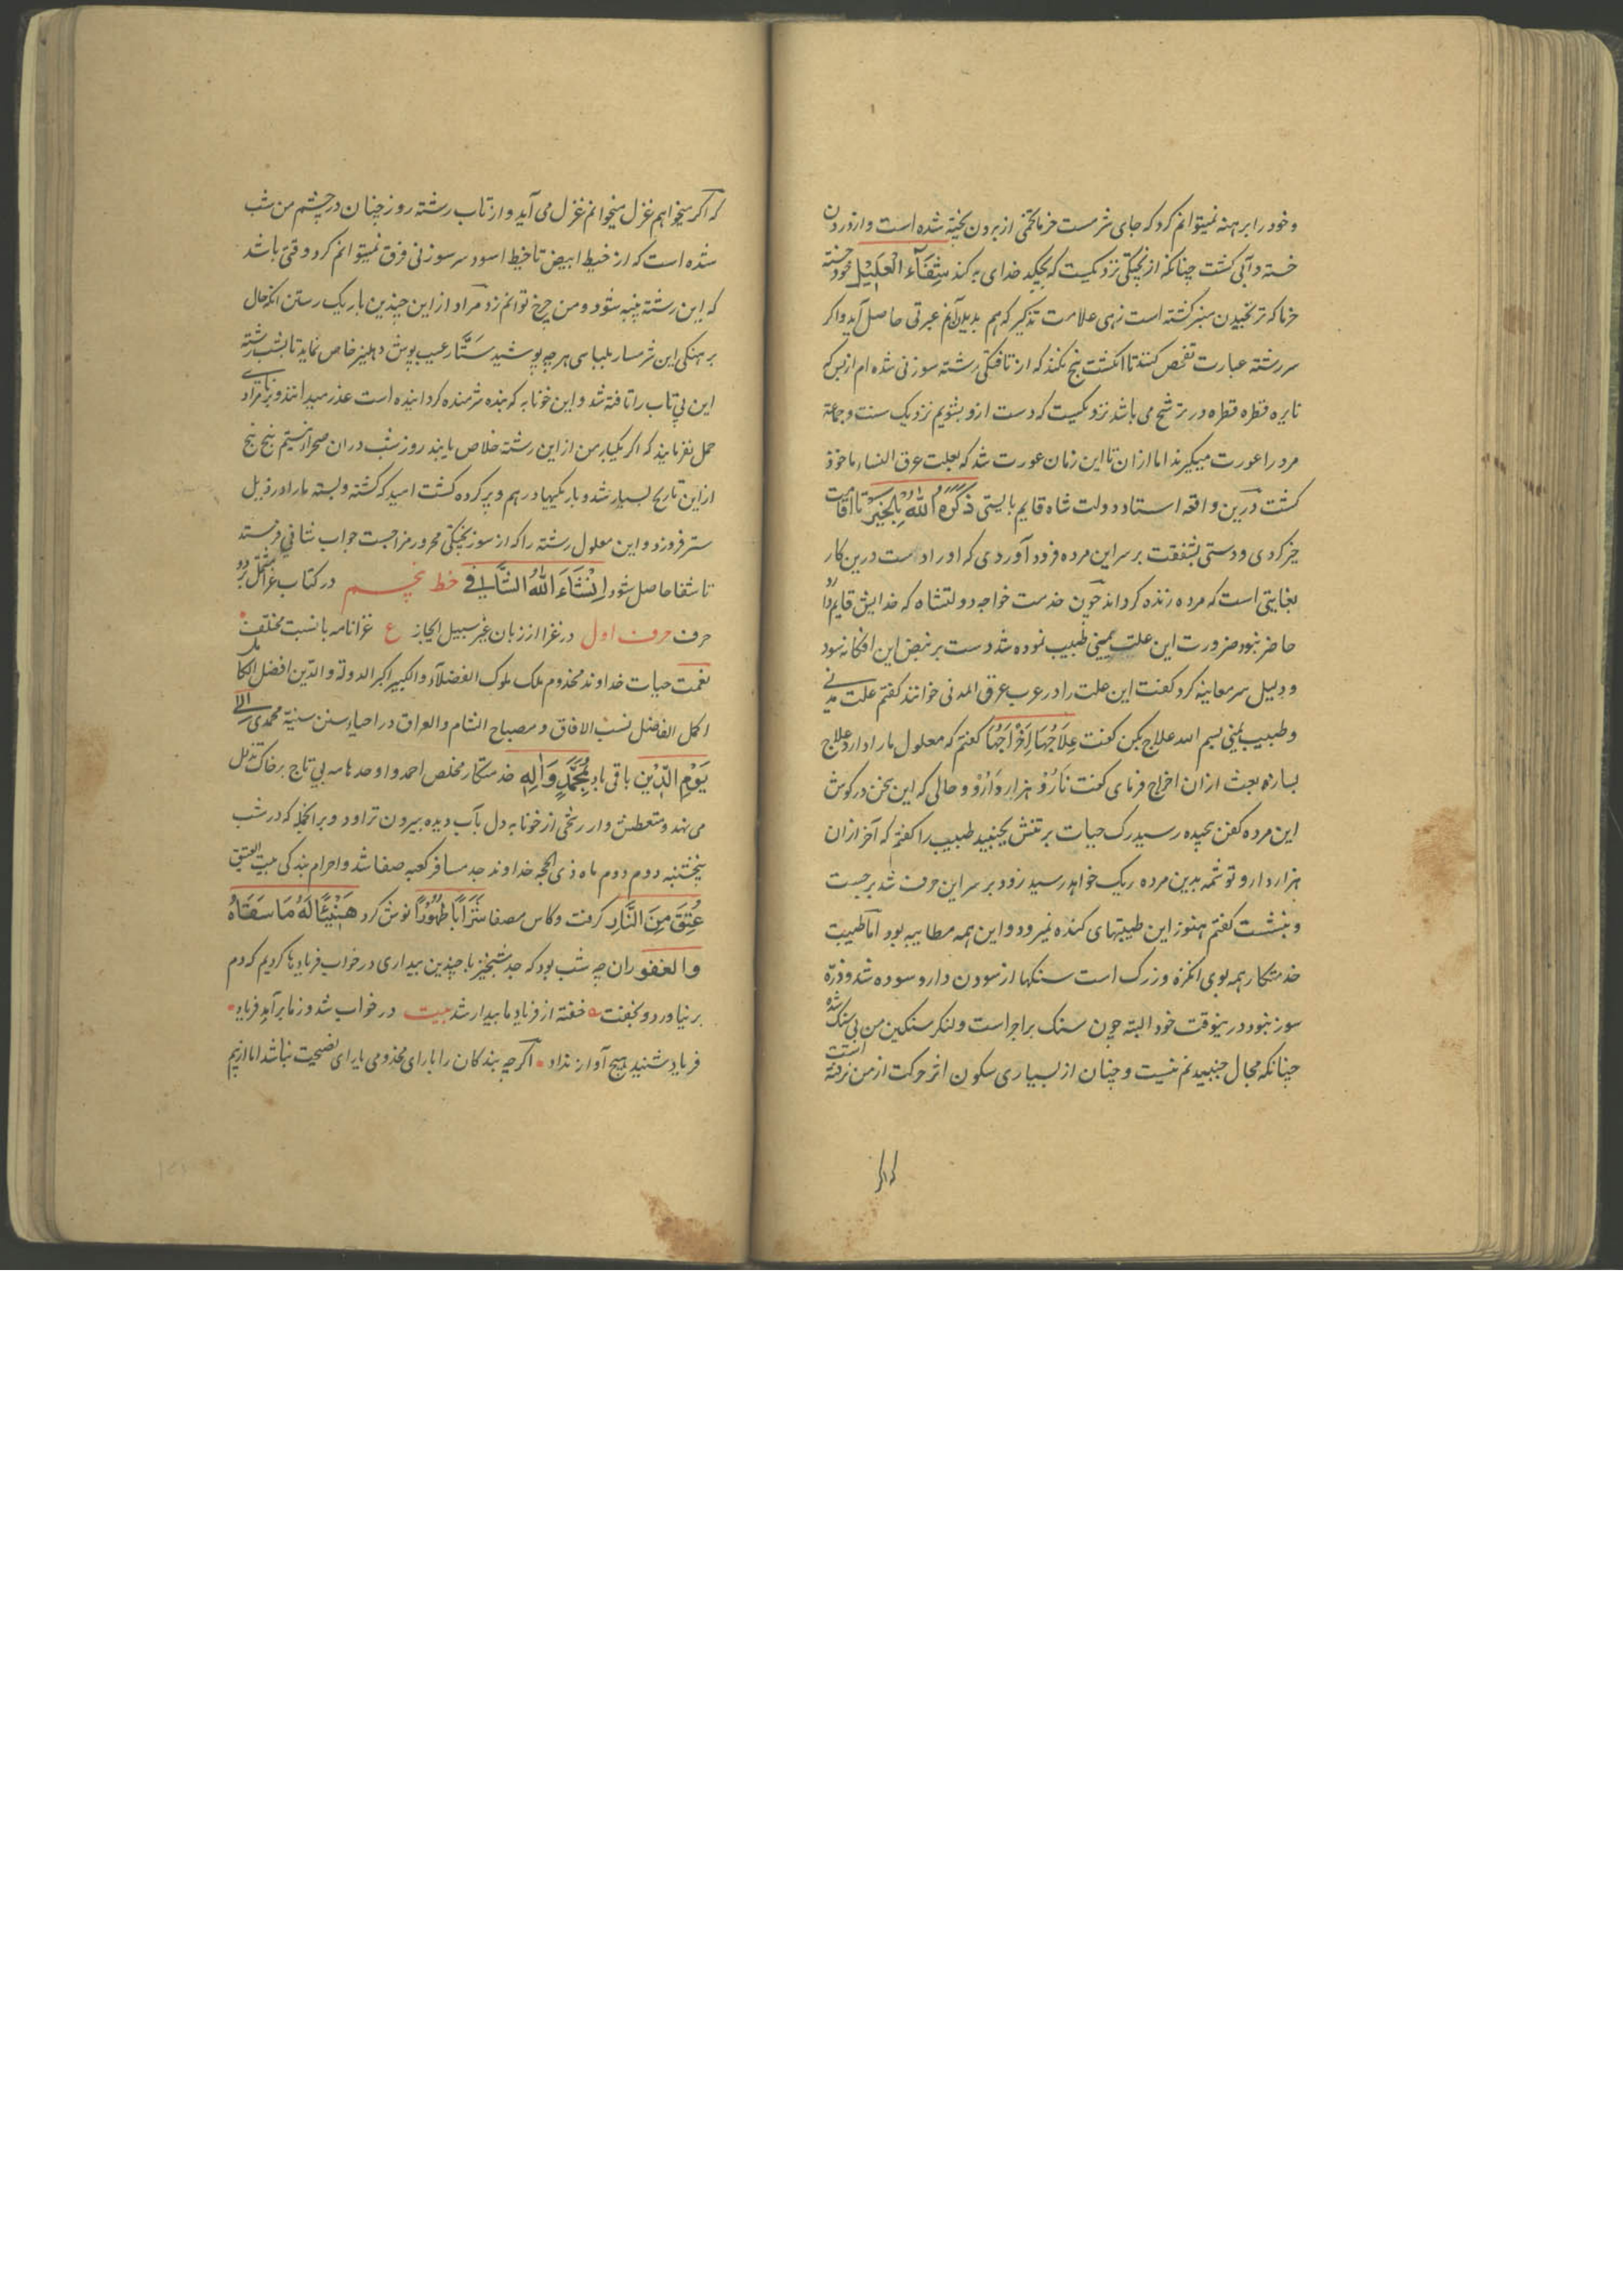 و خود را برهنه نمیتوانم کرد که جای شرمست خرماتختمی از برون پخته شده است و از درون
خسته و آبی کشت چنانکه از پختکی نزدیکست که بچکد خدای به کند شِفَآءَ الْعَلِیْل خود خسته
خرما که تر تخیدن سبز کشته است زهی علامت تذکیر که هم بدیدنم عبرتی حاصل آید و اکر
سررشته عبارت تفحص کنند تا انکشت پنج نکند که از تافتکی رشته سوزنی شده ام از بس که
نایره قطره قطره در ترشح می باشد نزدیکست که دست ازو بشویم نزدیک سنت و جماعة
مرد را عورت میگیرند اما از ان تا این زمان عورت شد که بعلت عرق النساء ماخوذ
کشت درین واقعه استاد دولت شاه قایم بایستی ذَکَرَهُ اللّٰهُ بِالْخَیْرِ تا اقامت
خیر کردی و دستی بشفقت بر سر این مرده فرود آوردی که او را دست درین کار
بغایتی است که مرده زنده کرداند چون خدمت خواجه دولتشاه که خدایش قایم دارد
حاضر نبود ضرورت این علت یمینی طبیب نموده شد دست بر نبض این افکانه سود
و دلیل سر معاینه کرد کفت این علت را در عرب عرق المدنی خوانند کفتم علت مدنی
و طبیب یمنی بسم الله علاج بکن کفت عِلَاجُهَا اِخْرَاجُهَا کفتم که معلول ما را دارد علاج
بسازه بعث از ان اخراج فرمای کفت نَارُوْ هزار دَارُوْ و حالی که این سخن در کوش
این مرده کفن بحیده رسید رک حیات بر تنش بجنبید طبیب را کفتم که آخر از ان
هزار دارو تو شمه بدین مرده ریک خواهد رسید زود بر سر این حرف شد برجست
و بنشست کفتم هنوز این طیبتهای کنده نمیرود و این همه مطایبه بود اما طیبت
خدمتکار همه بوی انکزه و زرک است سنکها از سودن دارو سوده شد و ذرّه
سوز نبود در ینوقت خود البته چون سنک براجراست و لنکر سنکین من بی سنک شده
چنانکه مجال جنبیدنم نیست و چنان از بسیاری سکون اثر حرکت از من نرفته است
که اکر
که اکر میخواهم غزل میخوانم غزل می آید و از تاب رشته روز چنان در چشم من شب
شده است که از خیط ابیض تا خیط اسود سر سوزنی فرق نمیتوانم کرد وقتی باشد
که این رشته پنبه شود و من چرخ توانم زد مرا و از این چندین باریک رستن انکه حال
برهنکی این شرمسار بلباسی هرچه پوشید سَتَّار عیب پوش دهلیز خاص نماید تا بشب رشته
این بی تاب را تافته شد و این خونابه که بنده شرمنده کردانیده است عذر میدانند و بزنای مراد
حمل نفرمایند که اکر یکبار من از این رشته خلاص یابند روز شب در ان صحرا نستیم پنج پنج
از این تاریخ بسیار شد و باریکیها در هم و پر کرده کشت امید که کشته و بسته ما را در ذیل
ستر فروزد و این معلول رشته را که از سوز پختکی محرور مزاجست جواب شافی فرستد
تا شفا حاصل شود اِنْشَآءَ اللّٰهُ الشَّافِی خط پنجم در کتاب غزا مشتمل بر دو
حرف حرف اول در غزا از زبان غیر سبیل الحجاز ع غزا نامه با نسبت مختلف
نغمت حیات خداوند مخدوم ملک ملوک الفضلاء و الکبیر اکبر الدولة و الدین افضل الکمال
اکمل الفاضل نسب الافاق و مصباح الشام و العراق در احیاء سنن سنیّة محمدی الی
یَوْمِ الدِّیْنِ باقی باد بِمُحَمَّدٍ وَاٰلِهٖ خدمتکار مخلص احمد و اوحد هامه بی تاج بر خاک تذلل
می نهد و متعطش وار رنخی از خونابه دل بآب دیده بیرون تراود و برانجملة که در شب
پنجشنبه دوم دوم ماه ذی الحجه خداوند جد مسافر کعبه صفا شد و احرام بندکی بیت العتیق
عُتِقَ مِنَ النَّارِ کرفت و کاس مصفا شَرَابًا طَهُوْرًا نوش کرد هَنِیْئًا لَهُ مَا سَقَاهُ
و الغفور ان چه شب بود که جد شبخیز با چندین بیداری در خواب فریادها کردیم که دم
بر نیاورد و نکفت خفته از فریاد ما بیدار شد بیت در خواب شد و ز ما برآید فریاد
فریاد شنید هیچ آواز نداد اکر چه بندکان را بارای مخدومی یارای نصیحت نباشد اما ازیم